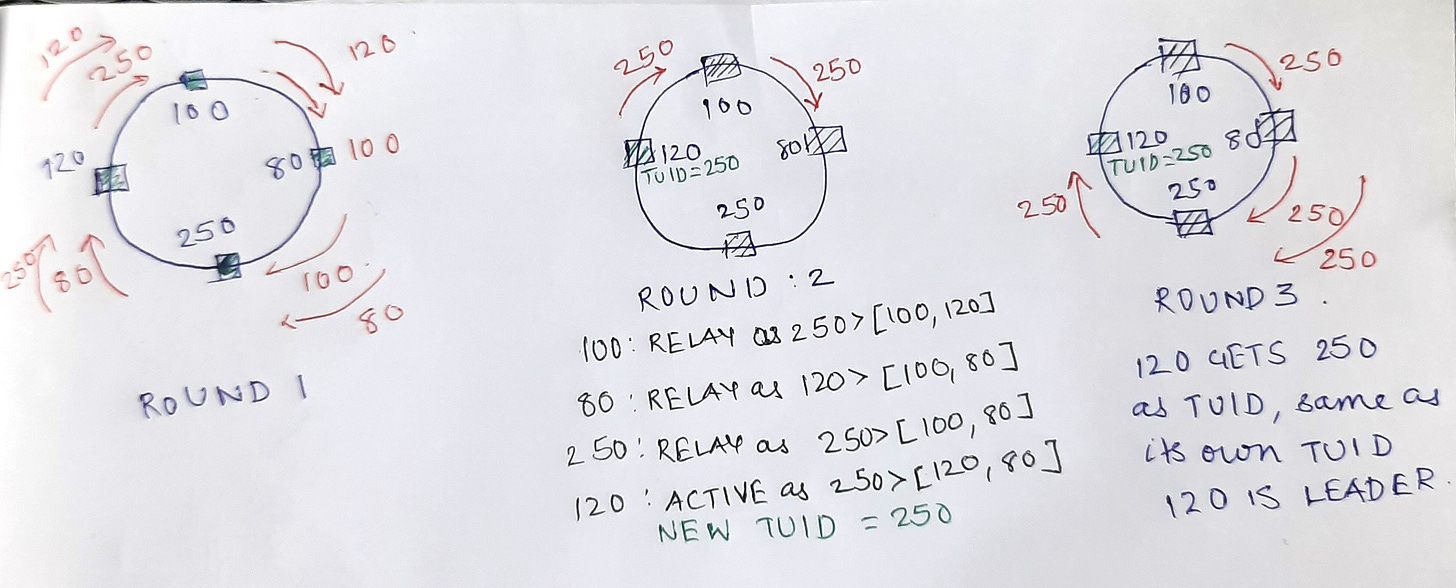 120
250
120
100
120
80
100
250
250
80
100
80
ROUND 1
250
250
100
120
80
TUID=250
250
ROUND : 2
100: RELAY as 250> [100, 120]
80 : RELAY as 120> [100, 80]
250: RELAY as 250> [100, 80]
120 : ACTIVE as 250> [120, 80]
NEW TUID = 250
250
100
120
80
TUID=250
250
250
250
250
ROUND 3 .
120 GETS 250
as TUID, same as
its own TUID
120 IS LEADER.